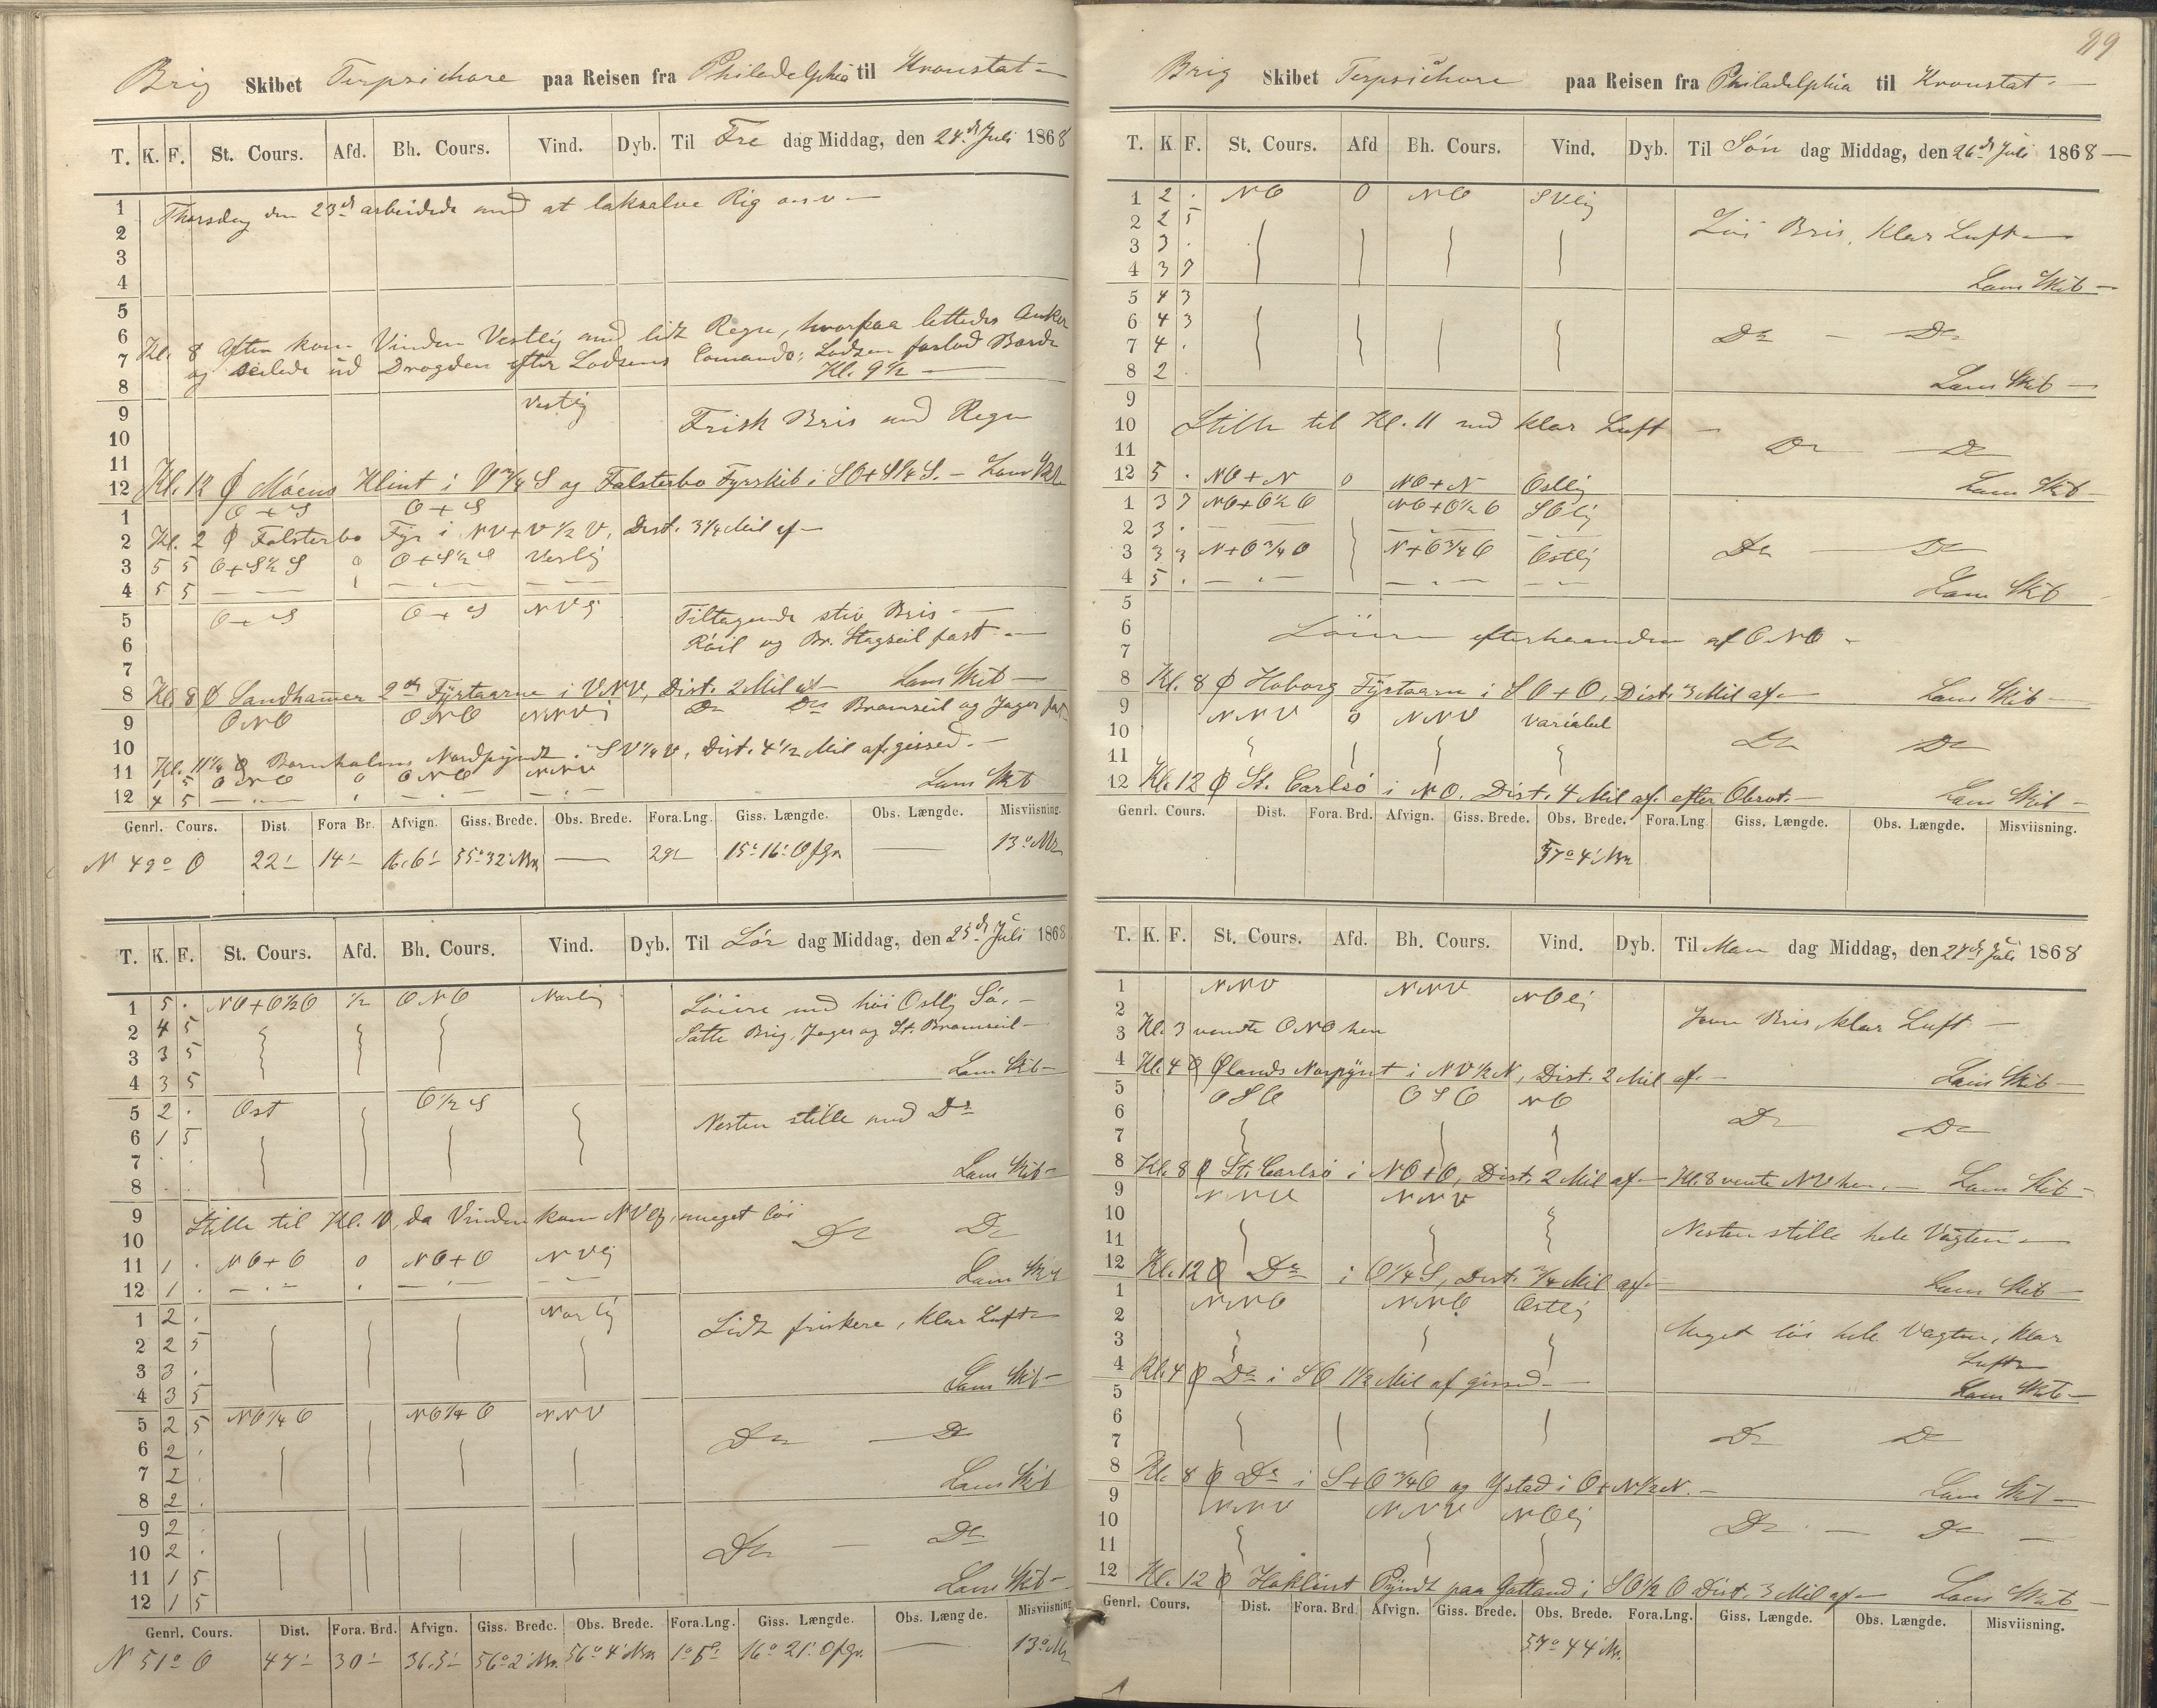 Brig Skibet Terpsichore paa Reisen fra Philadelphia til Kronstat
T. K. F. St. Cours. Afd. Bh. Cours. Vind. Dyb. Til Fre dag Middag, den 24de Juli 1868
1 Thorsdag den 23de arbeidede med at laksalve Rig o.s.v.
2
3
4
5
6 Kl. 8 Aften kom Vinden Vestlig med lidt Regn, hvorpaa lettedes Anker
7 og seilede ud Drogden efter Lodsens Comando; Lodsen forlod Borde
8 Kl. 9 1/2
9 Vestlig Frisk Bris med Regn
10
11
12 Kl. 12 Ø Möens Klint i V 3/4 S og Falsterbo Fyrskib i SO+S 1/4 S. Lens Skib
1 O+S O+S
2 Kl. 2 Ø Falsterbo Fyr i NV+V 1/2 V, Dist. 3/4 Mil af
3 5 5 O+S 1/2 S 0 O+S 1/2 S Vestlig
4 5 5
5 O+S O+S NVlig Tiltagende stiv Bris
6 Röil og Br. Stagseil fast
7
8 Kl. 8 Ø Sandhammer 2de Fyrtaarne i VNV, Dist. 2 Mil af Lens Skib
9 ONO ONO NNVlig Do Do Bramseil og Jager fast
10
11 Kl. 11 1/4 Ø Bornholms Nordpyndt i SV 1/4 V, Dist. 4 1/2 Mil af gisset.
ONO 0 ONO NNV
12 4 5 Lens Skib
Genrl. Cours. Dist. Fora Br. Afvign. Giss. Brede. Obs. Brede. Fora.Lng. Giss. Længde. Obs. Længde. Misviisning.
N 49° O 22' 14' 16,6' 55°32' Nbr 29' 15°16' Ofgr 13° Mr
T. K. F. St. Cours. Afd. Bh. Cours. Vind. Dyb. Til Lör dag Middag, den 25de Juli 1868
1 5 . NO+O 1/2 O 1/2 ONO Norlig Löiere med höi Ostlig Sö.
2 4 5 Satte Brig, Jager og St. Bramseil
3 3 5
4 3 5 Lens Skib
5 2 . Ost O 1/2 S Nesten stille med Do
6 1 5
7 . .
8 . . Lens Skib
9 Stille til Kl. 10, da Vinden kom NVlig, meget löi
10 Do Do
11 1 . NO+O 0 NO+O NVlig
12 1 . Lens Skib
1 2 . Norlig Lidt friskere, klar Luft
2 2 5
3 3 .
4 3 5 Lens Skib
5 2 5 NO 1/4 O NO 1/4 O NNV
6 2 . Do Do
7 2 .
8 2 . Lens Skib
9 2 .
10 2 . Do Do
11 1 5
12 1 5 Lens Skib
Genrl. Cours. Dist. Fora. Brd. Afvign. Giss. Brede. Obs. Brede. Fora.Lng. Giss. Længde. Obs. Længde. Misviisning
N 51° O 47' 30' 36,5' 56°2' Nbr. 56°4' Nbr 1°5' 16°21' Ofgr. 13° Mr
89
Brig Skibet Terpsichore paa Reisen fra Philadelphia til Kronstat
T. K F. St. Cours. Afd Bh. Cours. Vind. Dyb. Til Søn dag Middag, den 26de Juli 1868
1 2 . NO 0 NO SVlig
2 2 5 Löi Bris, klar Luft
3 3 .
4 3 7 Lens Skib
5 4 3
6 4 3 Do Do
7 4 .
8 2 . Lens Skib
9
10 Stille til Kl. 11 med klar Luft
11 Do Do
12 5 . NO+N 0 NO+N Ostlig Lens Skib
1 3 7 NO+O 1/2 O NO+O 1/2 O SOlig
2 3 .
3 3 3 N+O 3/4 O N+O 3/4 O Ostlig Do Do
4 5 . Lens Skib
5
6 Löiere efterhaanden af ONO
7
8 Kl. 8 Ø Hoborg Fyrtaarn i SO+O, Dist. 3 Mil af Lens Skib
9 NNV 0 NNV variabel
10 Do Do
11
12 Kl. 12 Ø St. Carlsö i NO. Dist. 4 Mil af efter Obsvt. Lens Skib
Genrl. Cours. Dist. Fora. Brd. Afvign. Giss. Brede. Obs. Brede. Fora.Lng Giss. Længde. Obs. Længde. Misviisning.
57°4' Nbr
T. K. F. St. Cours. Afd. Bh. Cours. Vind. Dyb. Til Man dag Middag, den 27de Juli 1868
1 NNV NNV NOlig
2 Jevn Bris klar Luft
3 Kl. 3 vendte ONO hen
4 Kl. 4 Ø Ølands Norpynt i NV 1/2 N, Dist. 2 Mil af. Lens Skib
5 OSO OSO NO
6 Do Do
7
8 Kl. 8 Ø St. Carlsö i NO+O, Dist. 2 Mil af Kl. 8 vente NV hen. Lens Skib
9 NNV NNV
10 Nesten stille hele Vagten
11
12 Kl. 12 Ø Do i O 1/4 S, Dist. 3/4 Mil af Lens Skib
1 NNO NNO Ostlig
2 Meget löi hele Vagten, klar
3 Luft
4 Kl. 4 Ø Do i SO 1 1/2 Mil af gisset Lens Skib
5
6
7 Do Do
8 Kl. 8 Ø Do i S+O 3/4 O og Ystad i O+N 1/2 N. Lens Skib
9 NNV NNV NOlig
10 Do Do
11
12 Kl. 12 Ø Hoklint Pyndt paa Gotland i SO 1/2 O Dist. 3 Mil af Lens Skib
Genrl. Cours. Dist. Fora. Brd. Afvign. Giss. Brede. Obs. Brede. Fora.Lng. Giss. Længde. Obs. Længde. Misviisning.
57°44' Nbr.